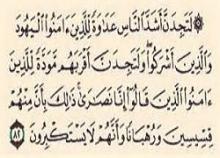 ۞ لَتَجِدَنَّ أَشَدَّ ٱلنَّاسِ عَدَٰوَةً لِّلَّذِينَ ءَامَنُوا۟ ٱلْيَهُودَ
وَٱلَّذِينَ أَشْرَكُوا۟ وَلَتَجِدَنَّ أَقْرَبَهُم مَّوَدَّةً لِّلَّذِينَ
ءَامَنُوا۟ ٱلَّذِينَ قَالُوٓا۟ إِنَّا نَصَٰرَىٰ ذَٰلِكَ بِأَنَّ مِنْهُمْ
قِسِّيسِينَ وَرُهْبَانًا وَأَنَّهُمْ لَا يَسْتَكْبِرُونَ ٨٢